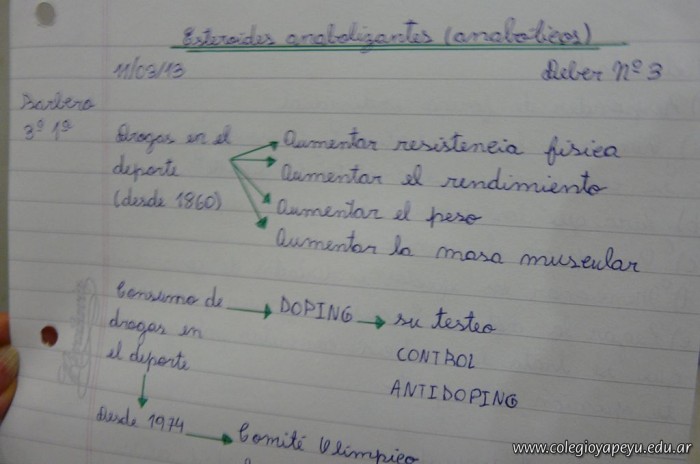 Esteroides anabolizantes (anabolicos)
11/03/13 Deber Nº 3
Barbero
3º 1º
Drogas en el deporte (desde 1860)
Aumentar resistencia física
Aumentar el rendimiento
Aumentar el peso
Aumentar la masa muscular
Consumo de drogas en el deporte
DOPING
su testeo
CONTROL
ANTIDOPING
Desde 1974
Comité Olímpico
www.colegioyapeyu.edu.ar